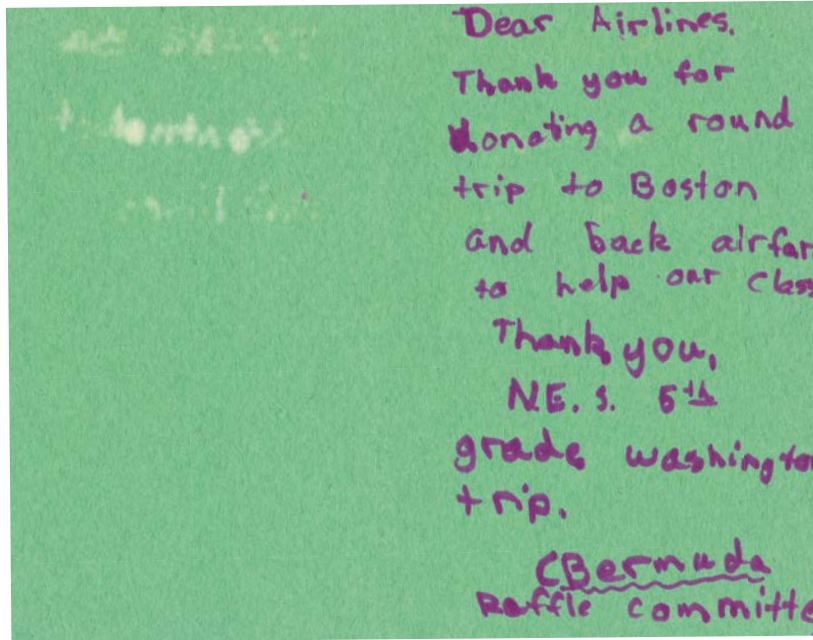 Dear Airlines.
Thank you for
donating a round
trip to Boston
and back airfar
to help our Class
Thank you,
N.E. S. 5th
grade washington
trip.
CBermuda
Raffle committe